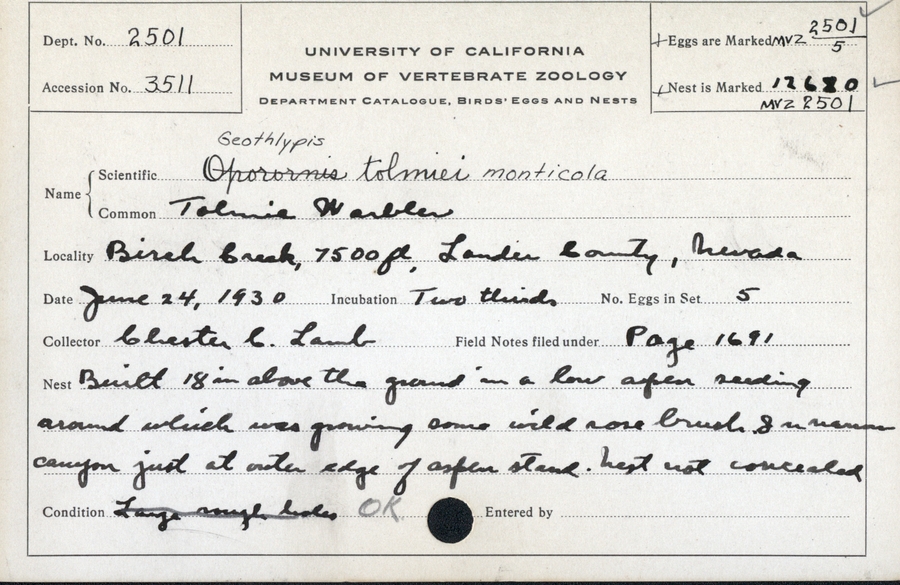 Dept. No. 2501
Accession No. 3511
UNIVERSITY OF CALIFORNIA
MUSEUM OF VERTEBRATE ZOOLOGY
DEPARTMENT CATALOGUE, BIRDS' EGGS AND NESTS
Eggs are Marked MVZ 2501/5
Nest is Marked 12680
MVZ 2501
Geothlypis
Name Scientific Oporornis tolmiei monticola
Common Tolmie Warbler
Locality Birch Creek, 7500 ft, Lander County, Nevada
Date June 24, 1930 Incubation Two thirds No. Eggs in Set 5
Collector Chester C. Lamb Field Notes filed under Page 1691
Nest Built 18 in above the ground in a low aspen seeding
around which was growing some wild rose brush. narrow
canyon just at outer edge of aspen stand. Nest not concealed
Condition Large rough holes OK Entered by